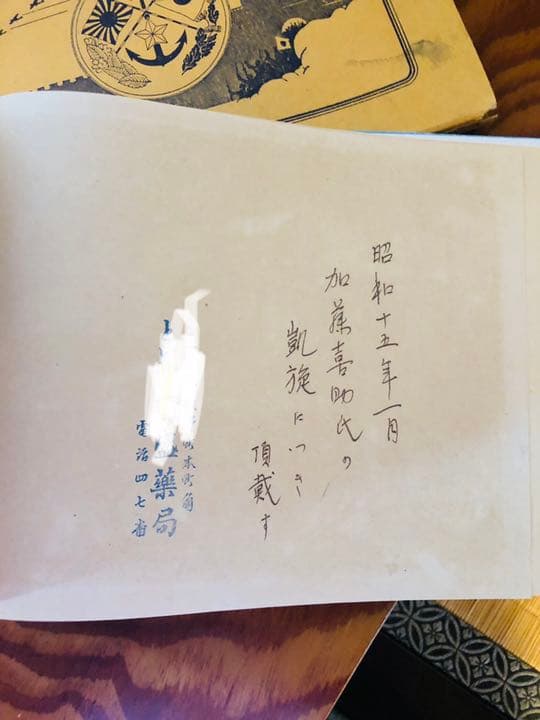 昭和十五年一月
加藤喜助氏の
凱旋につき
頂戴す
本町角
薬局
電話四七番